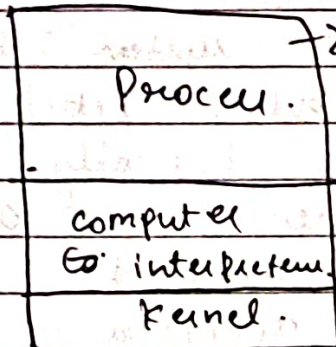 Process.
computer
interpreter.
Kernel.